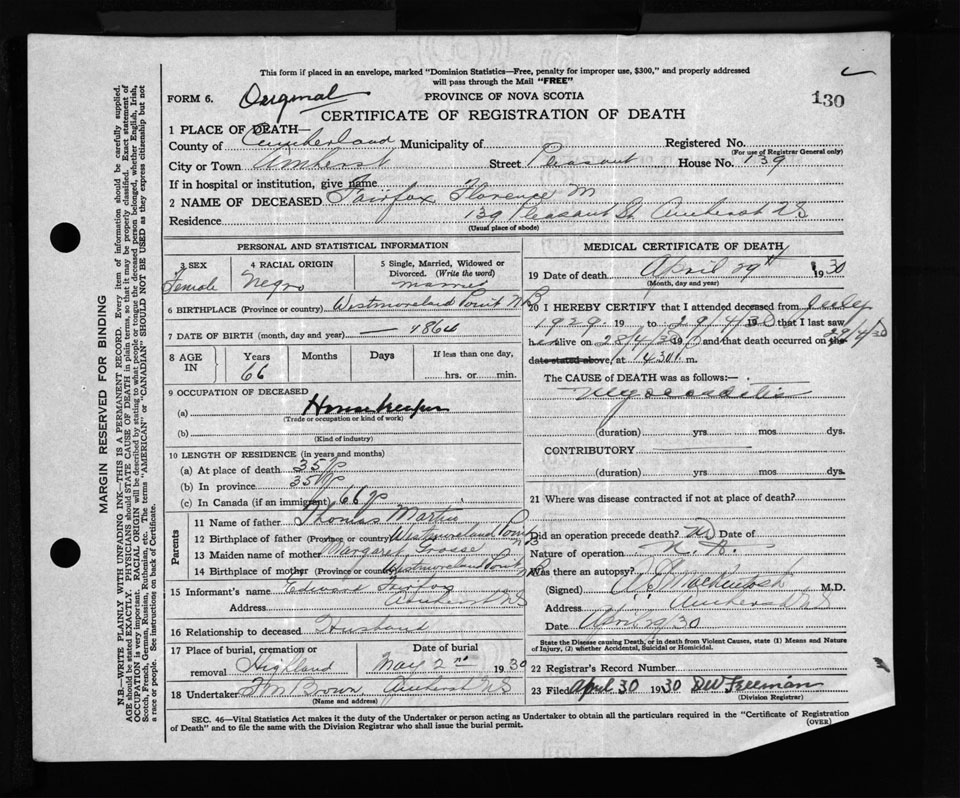 This form if placed in an envelope, marked "Dominion Statistics—Free, penalty for improper use, $300," and properly addressed
will pass through the Mail "FREE"
FORM 6. Original PROVINCE OF NOVA SCOTIA 130
CERTIFICATE OF REGISTRATION OF DEATH
1 PLACE OF DEATH—
County of Cumberland Municipality of Registered No.
(For use of Registrar General only)
City or Town Amherst Street Pleasant House No. 139
If in hospital or institution, give name
2 NAME OF DECEASED Fairfax Florence M
Residence 139 Pleasant St Amherst NS
(Usual place of abode)
PERSONAL AND STATISTICAL INFORMATION
3 SEX Female
4 RACIAL ORIGIN Negro
5 Single, Married, Widowed or Divorced. (Write the word) married
6 BIRTHPLACE (Province or country) Westmoreland Point NB
7 DATE OF BIRTH (month, day and year) — 1864
8 AGE IN Years 66 Months Days If less than one day, hrs. or min.
9 OCCUPATION OF DECEASED
(a) Housekeeper
(Trade or occupation or kind of work)
(b)
(Kind of industry)
10 LENGTH OF RESIDENCE (in years and months)
(a) At place of death 35 y
(b) In province 35 y
(c) In Canada (if an immigrant) 66 y
Parents
11 Name of father Thomas Martin
12 Birthplace of father (Province or country) Westmoreland Point NB
13 Maiden name of mother Margaret Grosse
14 Birthplace of mother (Province or country) Westmoreland Point NB
15 Informant's name Edward Fairfax
Address Amherst NS
16 Relationship to deceased Husband
17 Place of burial, cremation or removal Highland Date of burial May 2nd 1930
18 Undertaker F M Brown Amherst NS
(Name and address)
MEDICAL CERTIFICATE OF DEATH
19 Date of death April 29th 1930
(Month, day and year)
20 I HEREBY CERTIFY that I attended deceased from July
1929 19 to 29/4/30 19 that I last saw
h alive on 28/4/30 19 and that death occurred on the 29/4/30
date stated above, at 430 m.
The CAUSE of DEATH was as follows:—
Myocarditis
(duration) yrs. mos dys.
CONTRIBUTORY
(duration) yrs. mos dys.
21 Where was disease contracted if not at place of death?
Did an operation precede death? No Date of
Nature of operation
Was there an autopsy?
(Signed) Mackintosh M.D.
Address Amherst NS
Date April 29/30
State the Disease causing Death, or in death from Violent Causes, state (1) Means and Nature
of Injury, (2) whether Accidental, Suicidal or Homicidal.
22 Registrar's Record Number
23 Filed April 30 1930 DW Freeman
(Division Registrar)
SEC. 46—Vital Statistics Act makes it the duty of the Undertaker or person acting as Undertaker to obtain all the particulars required in the "Certificate of Registration
of Death" and to file the same with the Division Registrar who shall issue the burial permit. (OVER)
MARGIN RESERVED FOR BINDING
N.B.—WRITE PLAINLY WITH UNFADING INK—THIS IS A PERMANENT RECORD. Every item of information should be carefully supplied.
AGE should be stated EXACTLY. PHYSICIANS should STATE CAUSE OF DEATH in plain terms, so that it may be properly classified. Exact statement of
OCCUPATION is very important. RACIAL ORIGIN will be described by stating to what people or tongue the deceased person belonged, whether English, Irish,
Scotch, French, German, Russian, Ruthenian, etc. The terms "AMERICAN" or "CANADIAN" SHOULD NOT BE USED as they express citizenship but not
a race or people. See instructions on back of Certificate.